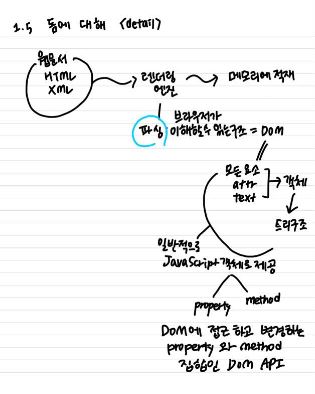 1.5 돔에 대해 <detail>
웹문서
HTML
XML
렌더링
엔진
메모리에 적재
파싱
브라우저가
이해할수 있는구조 = DOM
모든 요소
attr
text
객체
트리구조
일반적으로
JavaScript 객체로 제공
property
method
DOM에 접근하고 변경하는
property 와 method
집합인 DOM API